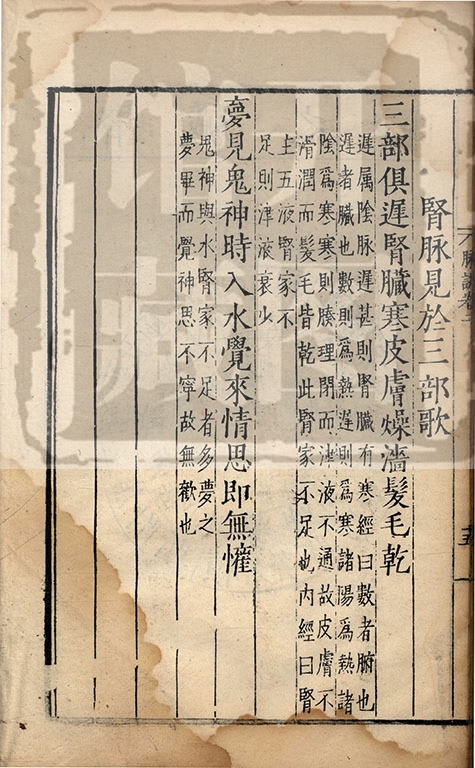 腎脉見於三部歌
三部俱遲腎臓寒皮膚燥濇髮毛乾
遲属陰脉遲甚則腎臓有寒經曰數者腑也
遲者臓也數則爲熱遲則爲寒諸陽爲熱諸
陰爲寒寒則腠理閉而津液不通故皮膚不
滑潤而髮毛皆乾此腎家不足也内經曰腎
主五液腎家不
足則津液衰少
夢見鬼神時入水覺來情思即無懽
鬼神與水腎家不足者多夢之
夢畢而覺神思不寧故無歡也